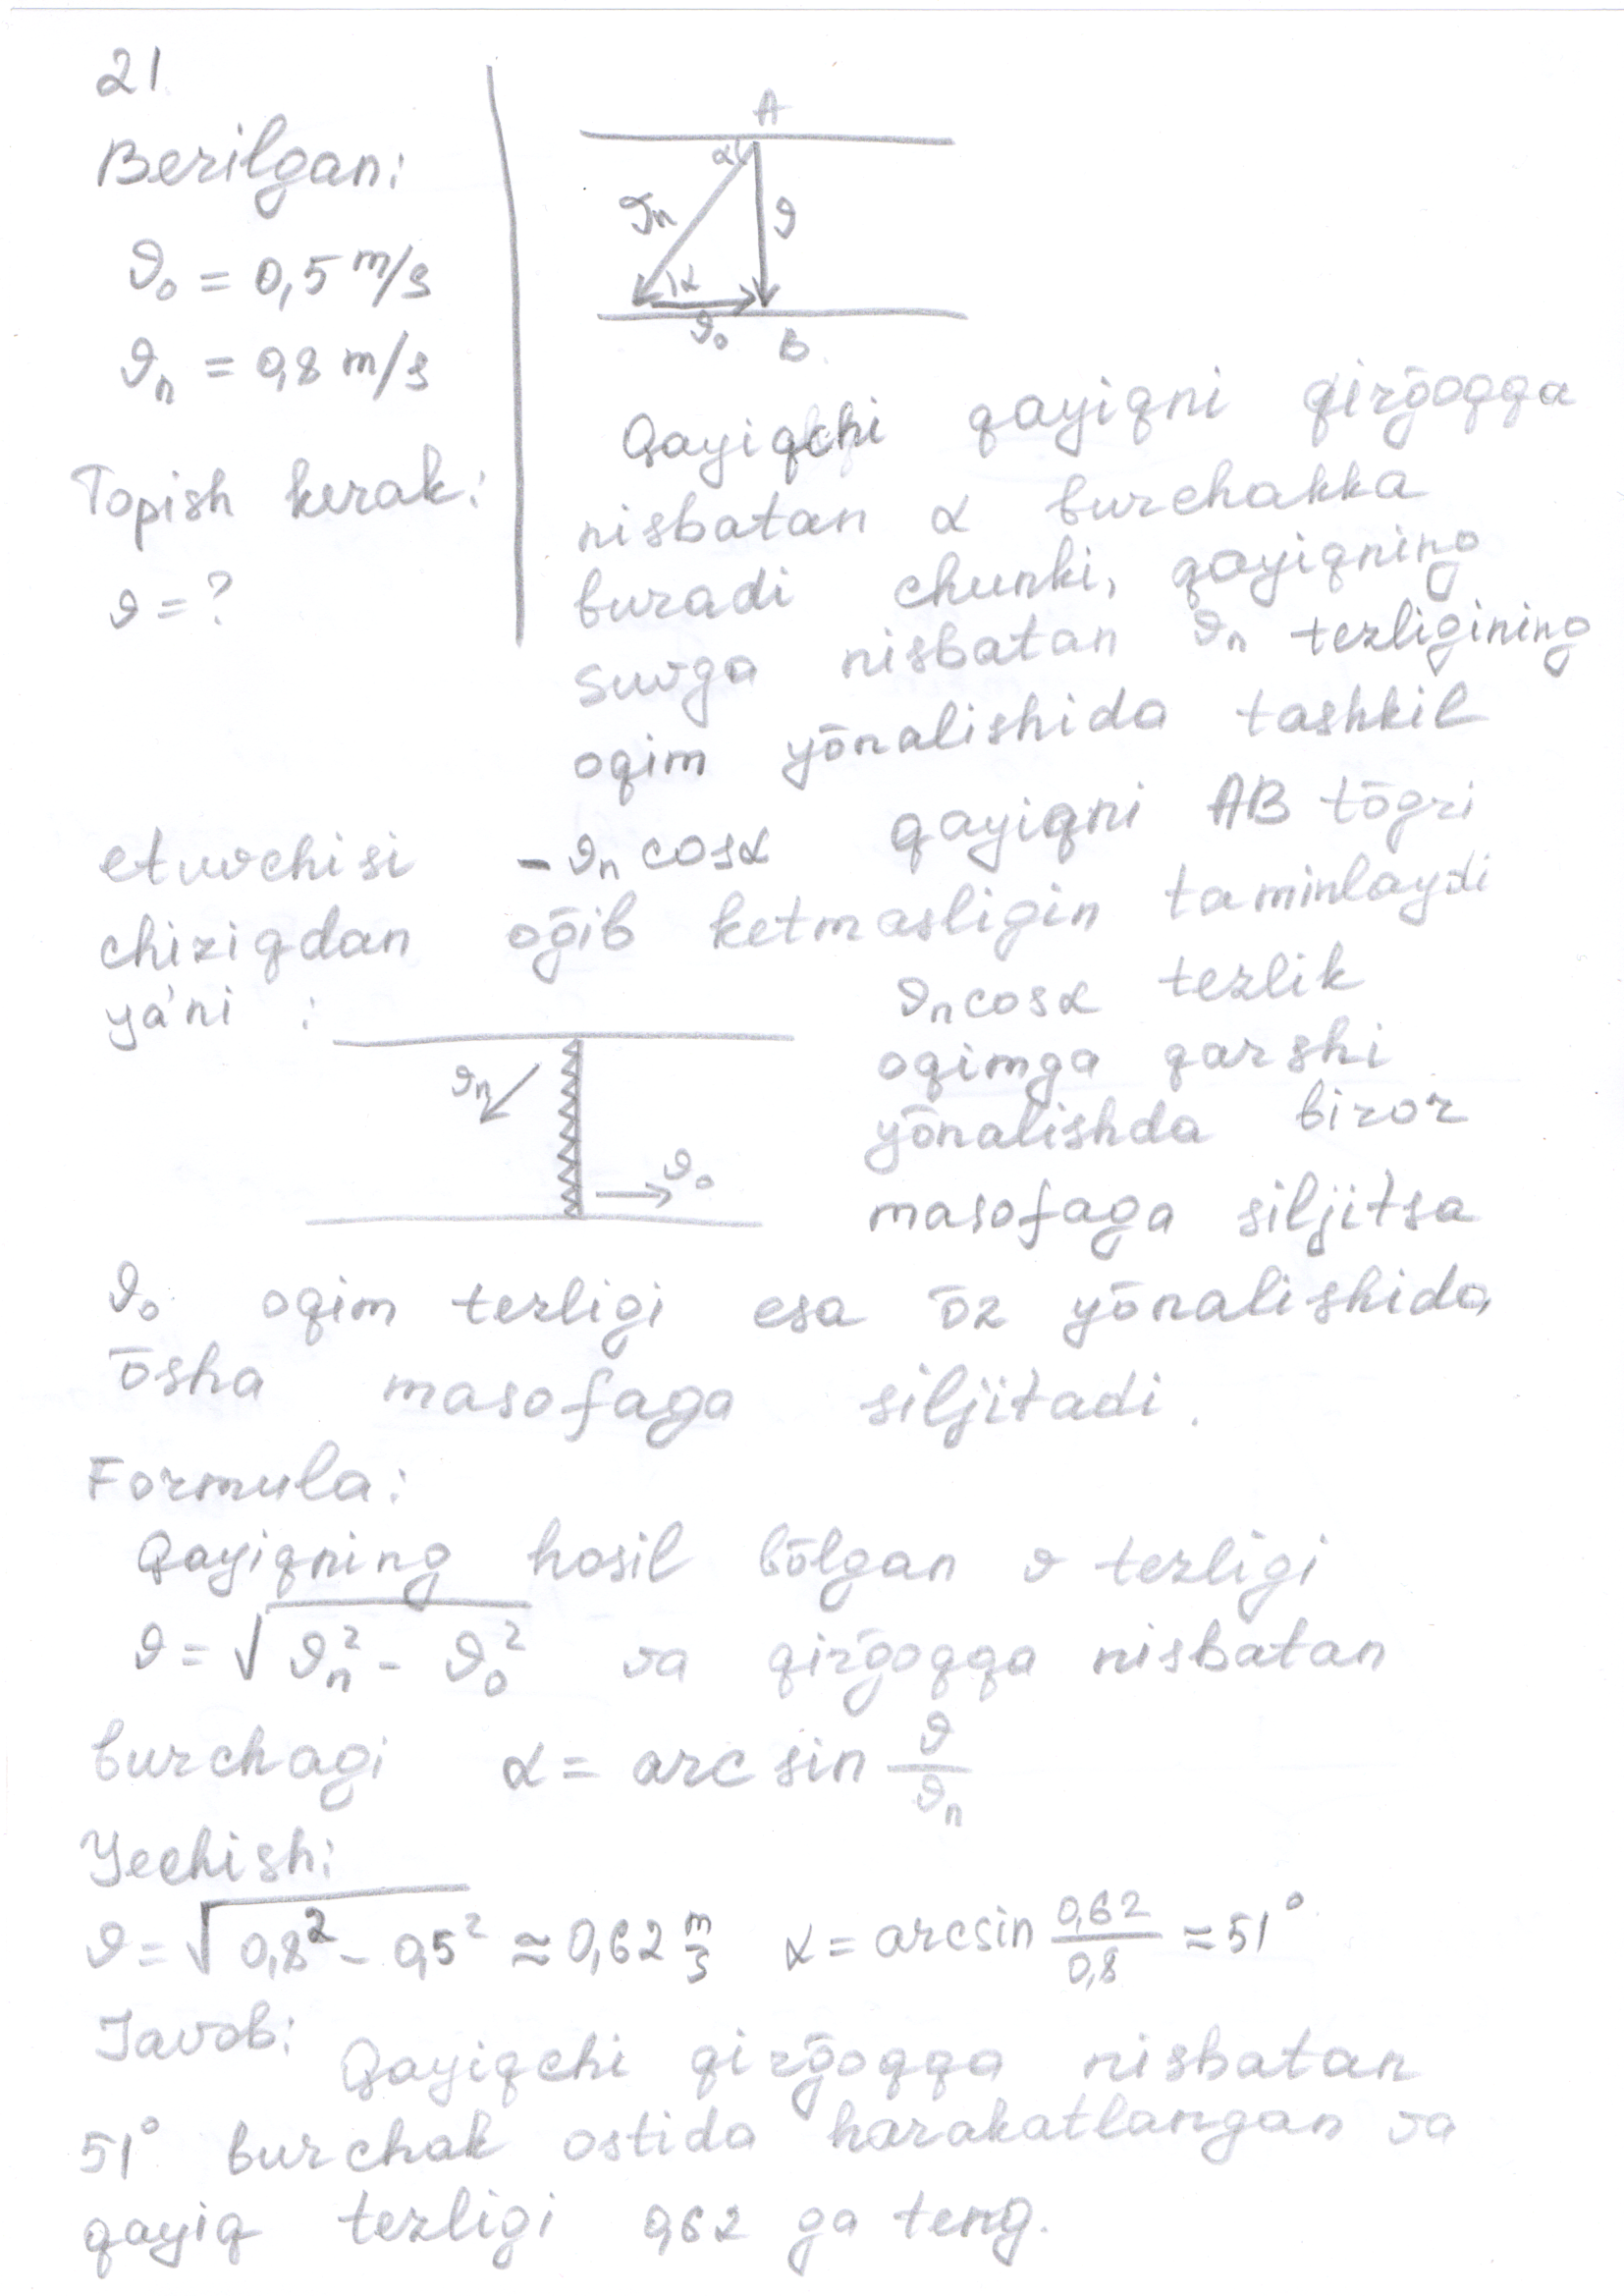 21.
Berilgan:
ϑ₀ = 0,5 m/s
ϑₙ = 0,8 m/s
Topish kerak:
ϑ = ?
A
α
ϑₙ
ϑ
α
ϑ₀
B
Qayiqchi qayiqni qirḡoqqa
nisbatan α burchakka
buradi chunki, qayiqning
suvga nisbatan ϑₙ tezligining
oqim yōnalishida tashkil
etuvchisi -ϑₙ cosα qayiqni AB tōgri
chiziqdan oḡib ketmasligin taminlaydi
ya'ni :
ϑₙ
ϑ₀
ϑₙcosα tezlik
oqimga qarshi
yōnalishda biror
masofaga siljitsa
ϑ₀ oqim tezligi esa ōz yōnalishida
ōsha masofaga siljitadi.
Formula:
Qayiqning hosil bōlgan ϑ tezligi
ϑ = √(ϑₙ² - ϑ₀²) va qirḡoqqa nisbatan
burchagi α = arc sin ϑ/ϑₙ
Yechish:
ϑ = √(0,8² - 0,5²) ≈ 0,62 m/s α = arcsin 0,62/0,8 ≈ 51°
Javob: Qayiqchi qirḡoqqa nisbatan
51° burchak ostida harakatlangan va
qayiq tezligi 0,62 ga teng.